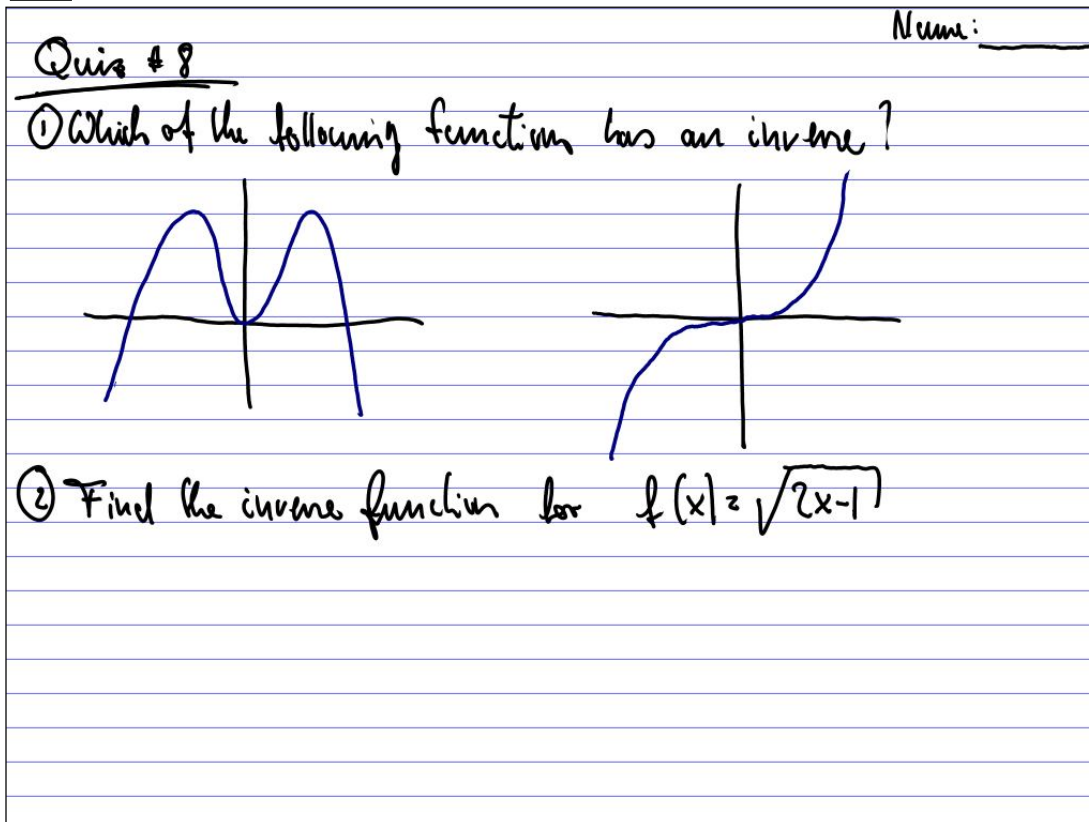 Name:
Quiz # 8
① Which of the following functions has an inverse?
② Find the inverse function for f(x) = √(2x-1)